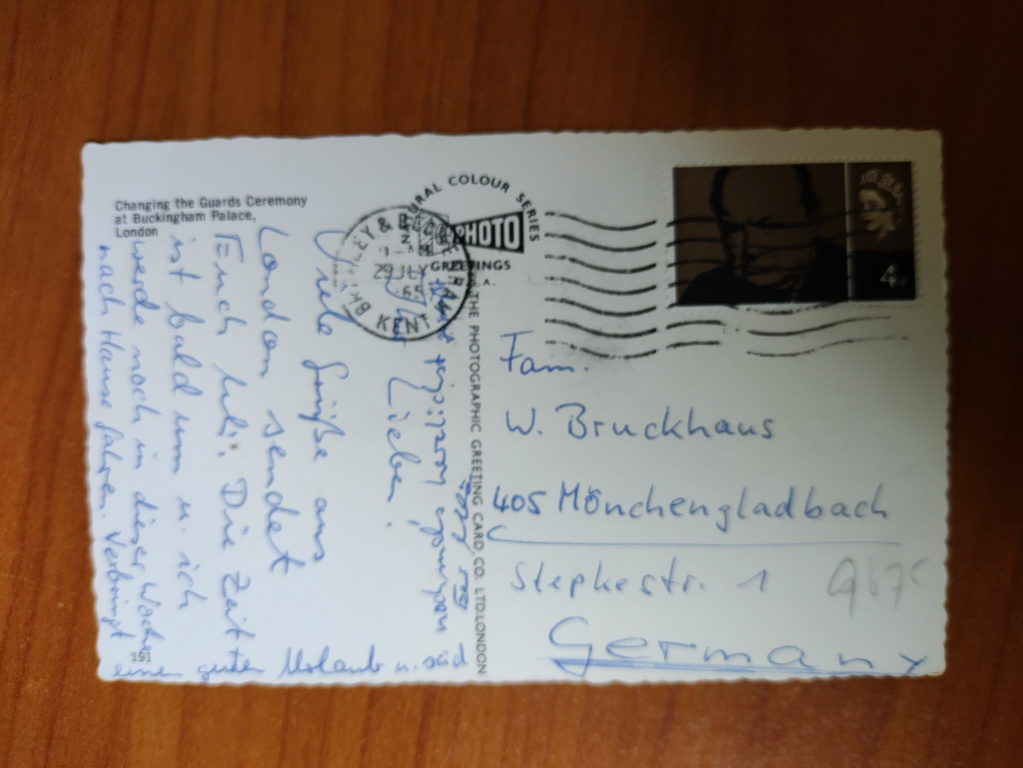 Changing the Guards Ceremony
at Buckingham Palace,
London
NATURAL COLOUR SERIES
PHOTO
GREETINGS
BROMLEY & BECKENHAM
29 JLY
65
KENT
4D
THE PHOTOGRAPHIC GREETING CARD CO. LTD. LONDON
Ihr Lieben!
Viele Grüße aus
London sendet
Euch
Die Zeit
ist bald um u. ich
werde noch in dieser Woche
nach Hause fahren. Verbringt
einen guten Urlaub u. seid
herzlich
Fam.
W. Bruckhaus
405 Mönchengladbach
Stepkestr. 1
Germany
191